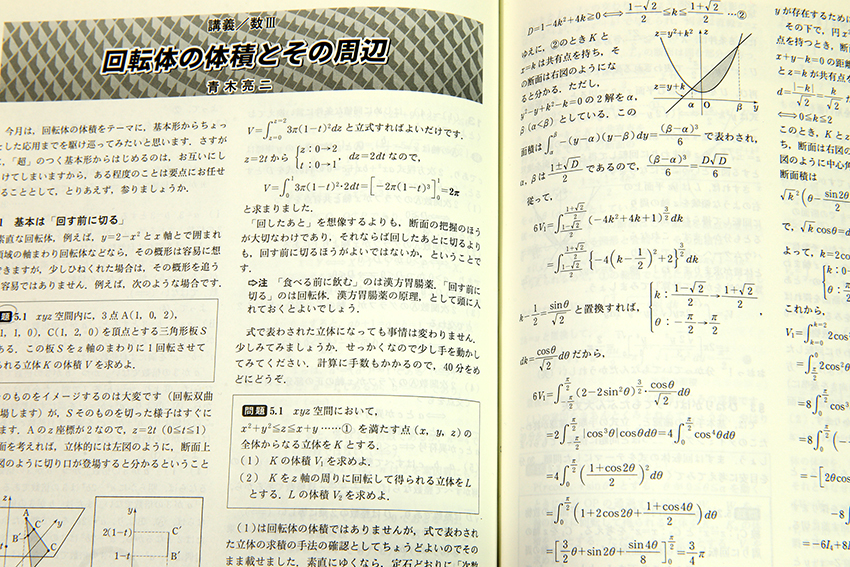 講義/数Ⅲ
回転体の体積とその周辺
青木亮二
今月は,回転体の体積をテーマに,基本形からちょっ
とした応用までを駆け巡ってみたいと思います.さすが
「超」のつく基本形からはじめるのは,お互いにし
けてしまいますから,ある程度のことは要点にお任せ
ることとして,とりあえず,参りましょうか.
1 基本は「回す前に切る」
素直な回転体,例えば,y=2-x²とx軸とで囲まれ
領域の軸まわり回転体などなら,その概形は容易に想
できますが,少しひねくれた場合は,その概形を追う
容易ではありません.例えば,次のようなものです.
題 5.1 xyz空間内に,3点A(1, 0, 2),
1, 1, 0),C(1, 2, 0)を頂点とする三角形板S
ある.この板Sをz軸のまわりに1回転させて
られる立体Kの体積Vを求めよ.
そのものをイメージするのは大変です(回転双曲
登場します)が,Sそのものを切った様子はすぐに
ます.Aのz座標が2なので,z=2t(0≦t≦1)
面を考えれば,立体的には左図のように,断面上
図のように切り口が登場すると分かるということ
z
A
C′
y
C
B′
2(1-t)
C′
1-t
B′
V=∫_{z=0}^{z=2}3π(1-t)²dz と立式すればよいだけです.
z=2tから{z:0→2 t:0→1, dz=2dtなので,
V=∫_0^1 3π(1-t)²・2dt=[-2π(1-t)³]_0^1=2π
と求まりました.
「回したあと」を想像するよりも,断面の把握のほう
が大切なわけであり,それならば回したあとに切るより
も,回す前に切るほうがよいではないか,ということで
す.
⇨注 「食べる前に飲む」のは漢方胃腸薬.「回す前に
切る」のは回転体.漢方胃腸薬の原理,として頭に入
れておくとよいでしょう.
式で表された立体になっても事情は変わりません.
少しみてみましょうか.せっかくなので少し手を動かし
てみてください.計算に手数もかかるので,40分をめ
どにどうぞ.
問題 5.1 xyz空間において,
x²+y²≦z≦x+y ……① を満たす点(x, y, z)の
全体からなる立体をKとする.
(1) Kの体積V₁を求めよ.
(2) Kをz軸の周りに回転して得られる立体をL
とする.Lの体積V₂を求めよ.
(1)は回転体の体積ではありませんが,式で表わされ
た立体の求積の手法の確認としてちょうどよいのでその
まま載せました.素直にゆくなら,定石どおりに「次数
D=1-4k²+4k≧0⟺(1-√2)/2≦k≦(1+√2)/2 …②
ゆえに,②のときKと
x=kは共有点を持ち,そ
の断面は右図のようにな
ると分かる.ただし,
y²-y+k²-k=0の2解をα,
β(α<β)としている.この
z=y²+k²
z
z=y+k
α O β y
面積は∫_α^β -(y-α)(y-β)dy=(β-α)³/6 で表わされ,
α, βは(1±√D)/2であるので,(β-α)³/6=D√D/6
従って,
6V₁=∫_{(1-√2)/2}^{(1+√2)/2}(-4k²+4k+1)^{3/2}dk
=∫_{(1-√2)/2}^{(1+√2)/2}{-4(k-1/2)²+2}^{3/2}dk
k-1/2=sinθ/√2 と置換すれば,{k:(1-√2)/2→(1+√2)/2 θ:-π/2→π/2,
dk=cosθ/√2 dθだから,
6V₁=∫_{-π/2}^{π/2}(2-2sin²θ)^{3/2}・cosθ/√2 dθ
=2∫_{-π/2}^{π/2}|cos³θ|cosθdθ=4∫_0^{π/2}cos⁴θdθ
=4∫_0^{π/2}((1+cos2θ)/2)²dθ
=∫_0^{π/2}(1+2cos2θ+(1+cos4θ)/2)dθ
=[3/2 θ+sin2θ+sin4θ/8]_0^{π/2}=3/4 π
yが存在するために
その下で,円x²
点を持つとき,断
x+y-k=0の距離
とz=kが共有点を
d=|-k|/√2=k/
⟺0≦k≦2
このとき,Kと
ち,断面は右図の
図のように中心角
断面積は
√k²(θ-sin2θ/2
で,√k cosθ=d
よって,k=2co
{k:0 θ:
これから,
V₁=∫_{k=0}^{k=2}
=8∫
=-[2cosθ
-8∫
=-6I₄+8I